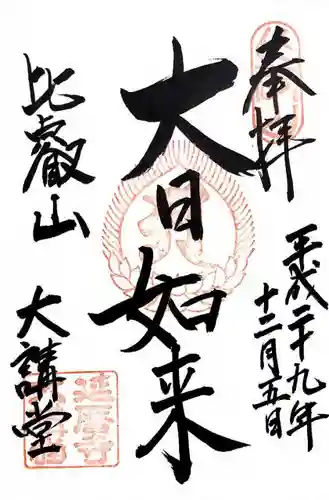 奉拝
平成二十九年
十二月五日
大日如来
比叡山
大講堂
延暦寺